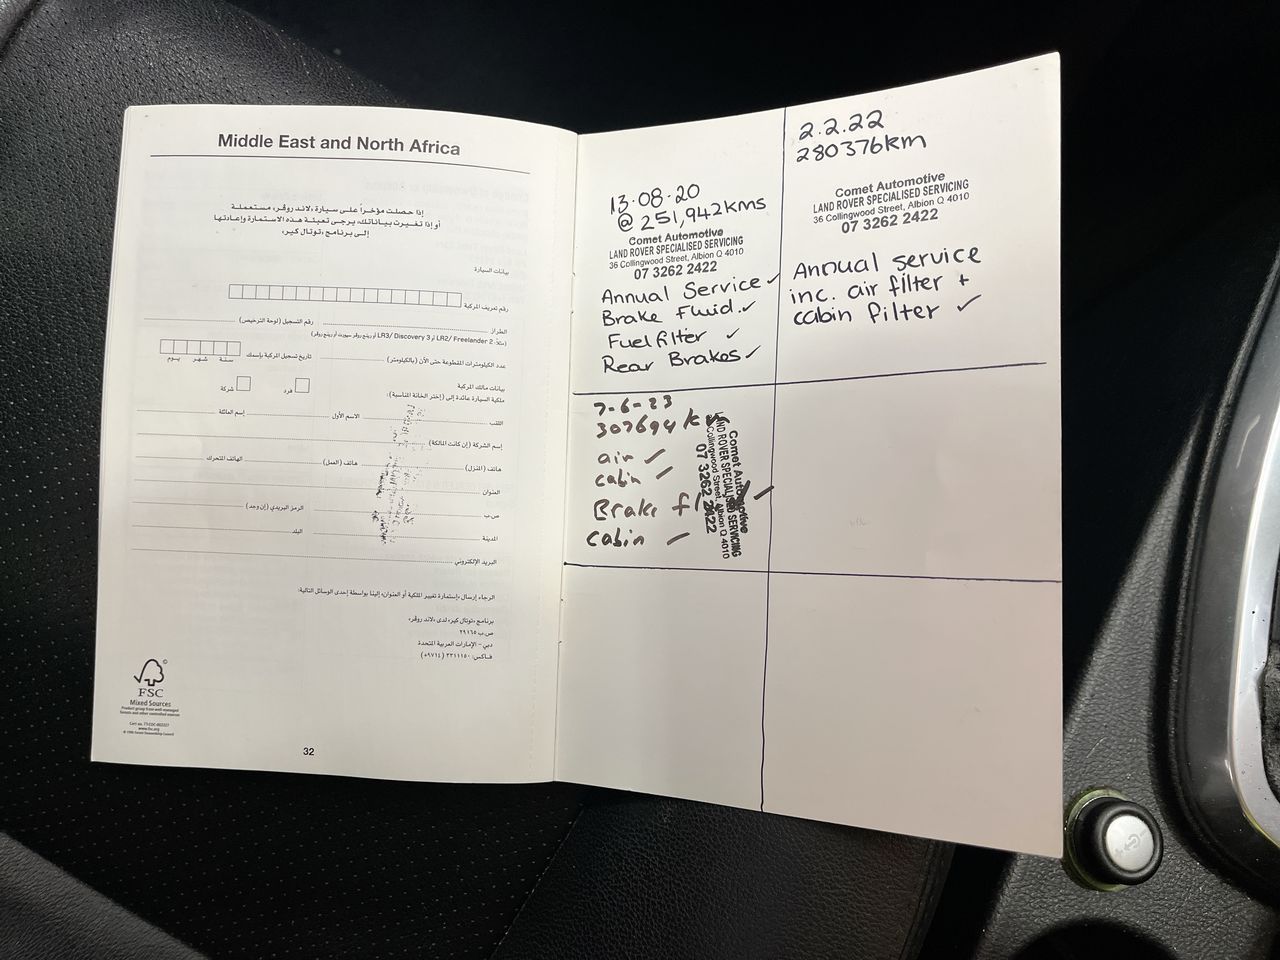 Middle East and North Africa
إذا حصلت مؤخراً على سيارة ،لاند روڤر، مستعملة
أو إذا تغيرت بياناتك، يرجى تعبئة هذه الاستمارة وإعادتها
إلى برنامج ،توتال كير،
بيانات السيارة
رقم تعريف المركبة
الطراز رقم التسجيل (لوحة الترخيص)
(مثلاً: LR2/ Freelander 2 أو LR3/ Discovery 3 أو رينج روڤر سبورت أو رينج روڤر)
عدد الكيلومترات المقطوعة حتى الآن (بالكيلومتر) تاريخ تسجيل المركبة بإسمك
سنة شهر يوم
بيانات مالك المركبة
ملكية السيارة عائدة إلى (إختر الخانة المناسبة): فرد شركة
اللقب الاسم الأول إسم العائلة
إسم الشركة (إن كانت المالكة)
هاتف (المنزل) هاتف (العمل) الهاتف المتحرك
العنوان
ص.ب الرمز البريدي (إن وجد)
المدينة البلد
البريد الإلكتروني
الرجاء إرسال ،إستمارة تغيير الملكية أو العنوان، إلينا بواسطة إحدى الوسائل التالية:
برنامج ،توتال كير، لدى ،لاند روڤر،
ص.ب ٢٩١٦٥
دبي - الإمارات العربية المتحدة
فاكس: ٣٣١١١٥٠ (٩٧١٤+)
FSC
Mixed Sources
Product group from well-managed
forests and other controlled sources
www.fsc.org
© 1996 Forest Stewardship Council
32
13.08.20
@ 251,942kms
Comet Automotive
LAND ROVER SPECIALISED SERVICING
36 Collingwood Street, Albion Q 4010
07 3262 2422
Annual Service ✓
Brake Fluid ✓
Fuel filter ✓
Rear Brakes ✓
2.2.22
280376km
Comet Automotive
LAND ROVER SPECIALISED SERVICING
36 Collingwood Street, Albion Q 4010
07 3262 2422
Annual service
inc. air filter +
cabin filter ✓
7-6-23
307694 k
air ✓
cabin ✓
Brake fl
cabin ✓
Comet Automotive
LAND ROVER SPECIALISED SERVICING
Collingwood Street, Albion Q 4010
07 3262 2422